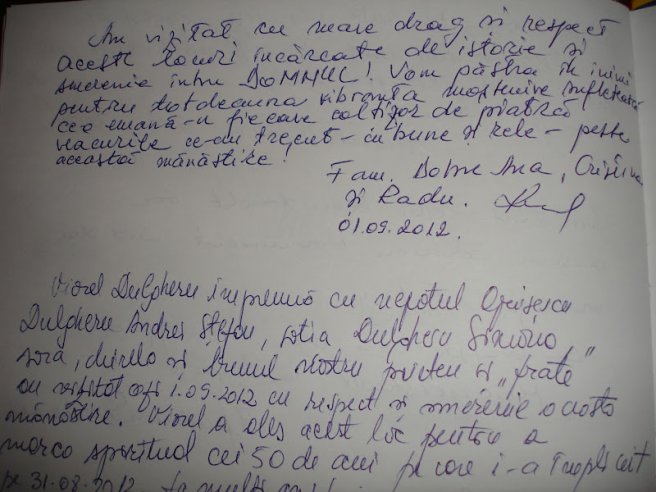 Am vizitat cu mare drag și respect
aceste locuri încărcate de istorie și
smerenie întru DOMNUL! Vom păstra în inimi
pentru totdeauna vibranta moștenire sufletească
ce o emană-n fiecare colțișor de piatră
veacurile ce-au trecut - cu bune și rele - peste
această mănăstire!
Fam. Dobre Ana, Cristina
și Radu.
01.09.2012.
Viorel Dulgheru împreună cu nepotul
Dulgheru Andrei Ștefan, soția Dulgheru
sora, și bunul nostru prieten și „frate”
au vizitat azi 1.09.2012 cu respect și smerenie această
mănăstire. Viorel a ales acest loc pentru a
marca spiritual cei 50 de ani pe care i-a împlinit
pe 31.08.2012 La mulți ani!